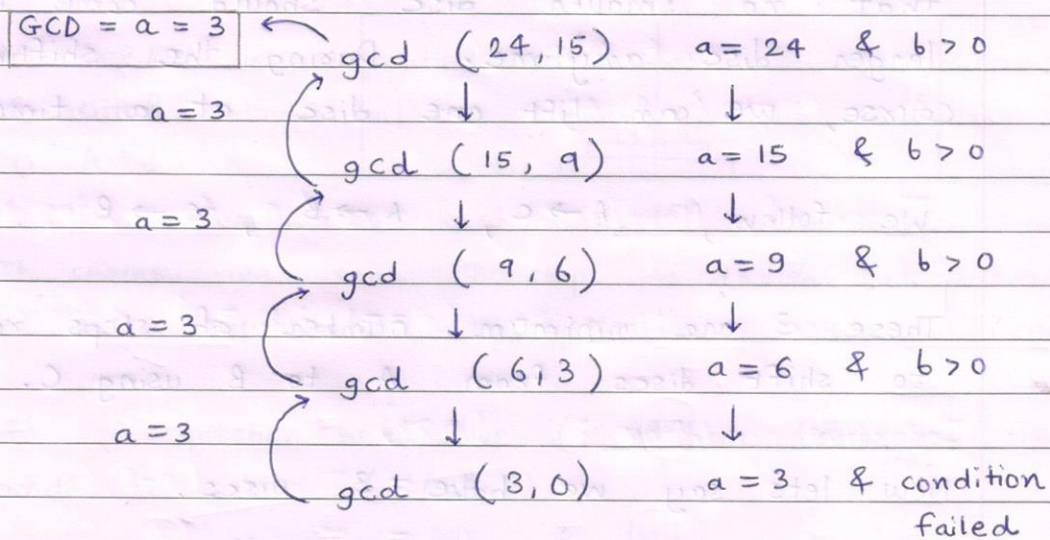 GCD = a = 3
gcd (24, 15) a = 24 & b > 0
a = 3
gcd (15, 9) a = 15 & b > 0
a = 3
gcd (9, 6) a = 9 & b > 0
a = 3
gcd (6, 3) a = 6 & b > 0
a = 3
gcd (3, 0) a = 3 & condition
failed